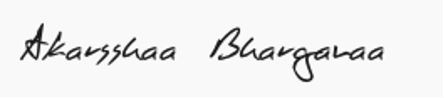 Akarsshaa Bharganaa